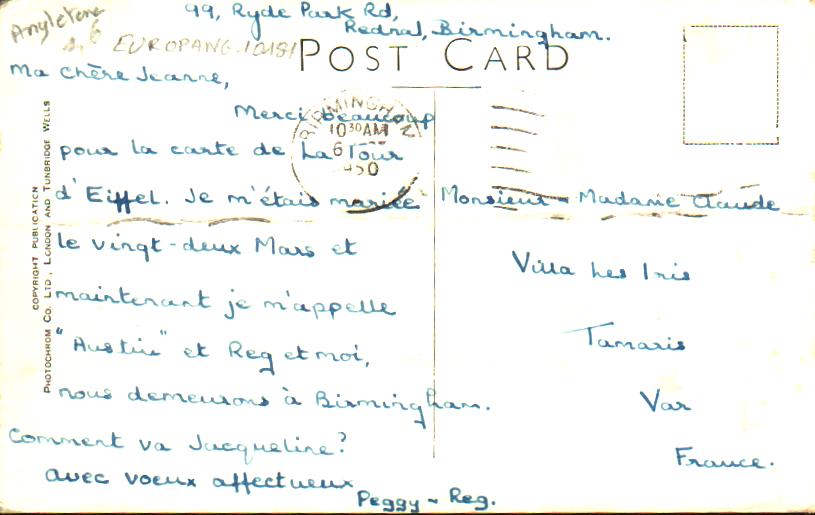 Angleterre
99, Ryde Park Rd,
Rednal, Birmingham.
EUROPANG-10151
POST CARD
Ma chère Jeanne,
Merci beaucoup
pour la carte de La Tour
d'Eiffel. Je m'étais mariée
le vingt-deux Mars et
maintenant je m'appelle
"Austin" et Reg et moi,
nous demeurons à Birmingham.
Comment va Jacqueline?
avec voeux affectueux
Peggy - Reg.
BIRMINGHAM
10 30 AM
6
950
Monsieur - Madame Claude
Villa Les Iris
Tamaris
Var
France.
COPYRIGHT PUBLICATION
PHOTOCHROM CO. LTD., LONDON AND TUNBRIDGE WELLS